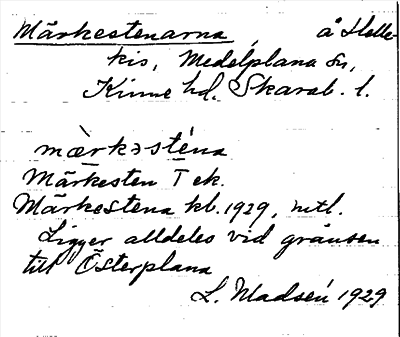 Märkestenarna, å Helle-
kis, Medelplana sn,
Kinne hd. Skarab. l.
mæ̀rkəsténa
Märkesten T ek.
Märkestena kb. 1929, mtl.
Ligger alldeles vid gränsen
till Österplana
L. Madsén 1929